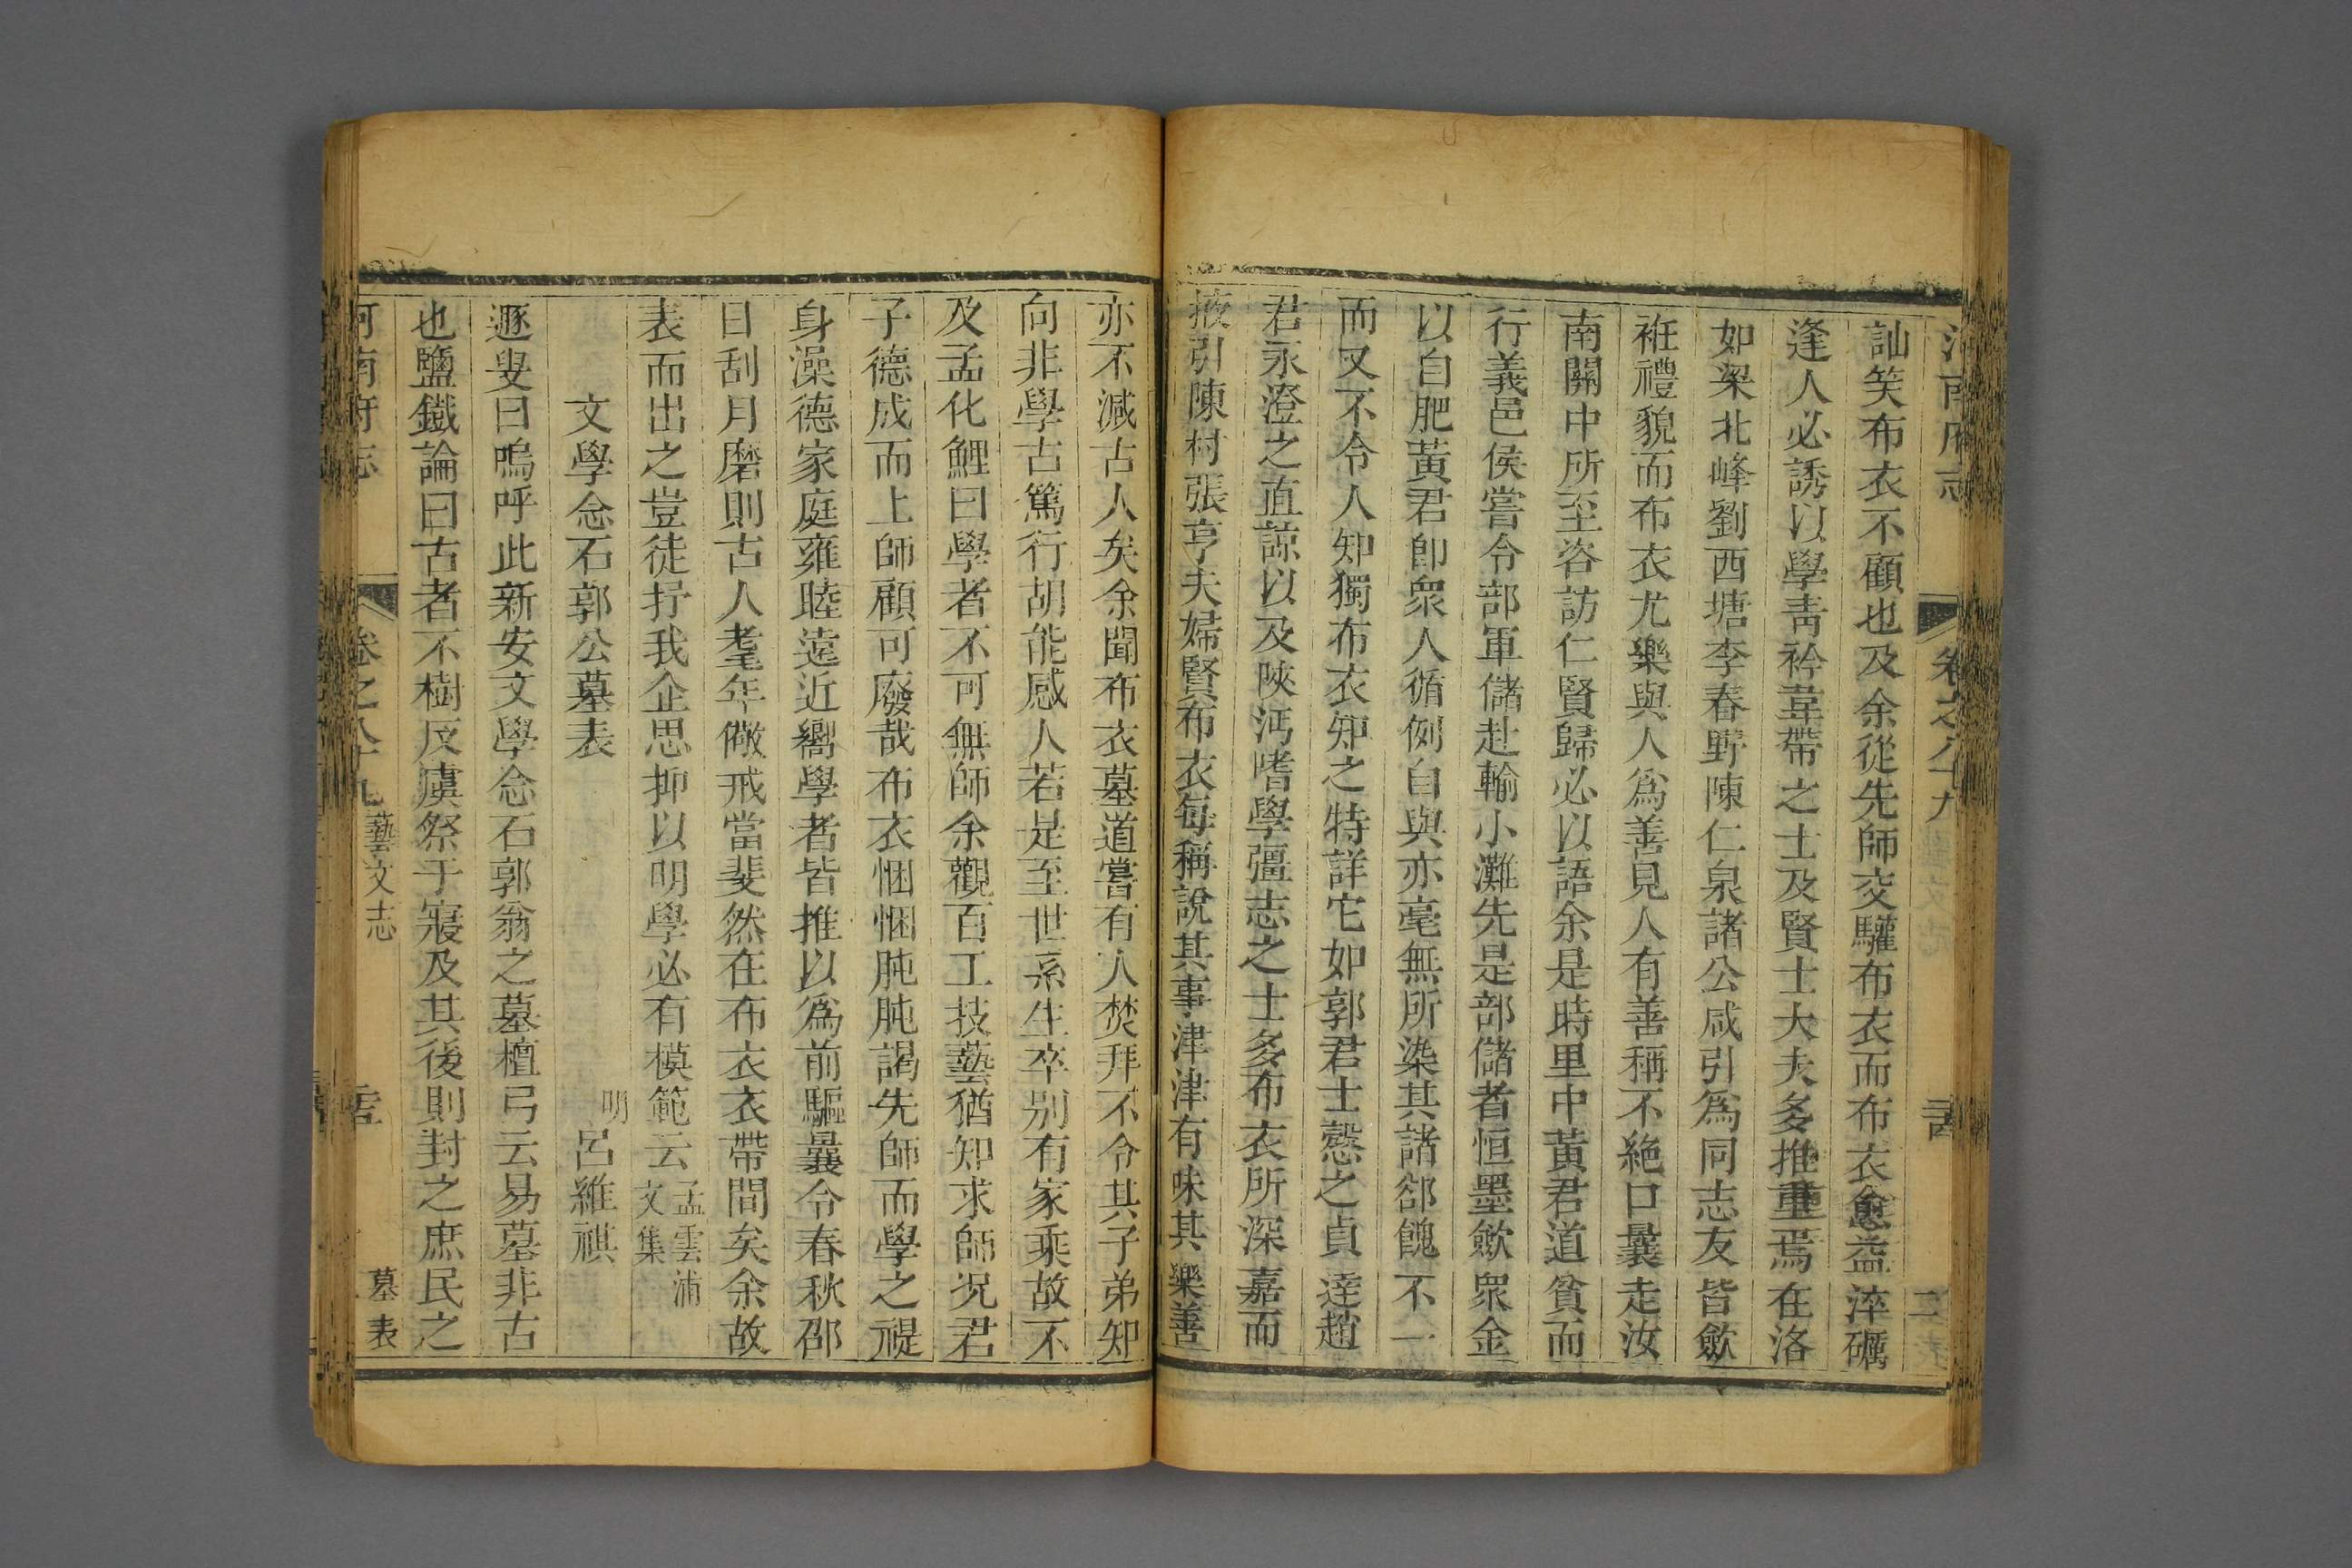 河南府志 卷之八十九
訕笑布衣不顧也及余從先師交驩布衣而布衣愈益淬礪
逢人必誘以學靑衿韋帶之士及賢士大夫多推重焉在洛
如梁北峰劉西塘李春野陳仁泉諸公咸引爲同志友皆歛
袵禮貌而布衣尤樂與人爲善見人有善稱不絶口曩走汝
南關中所至咨訪仁賢歸必以語余是時里中黃君道貧而
行義邑侯嘗令部軍儲赴輸小灘先是部儲者恒墨歛衆金
以自肥黃君卽衆人循例自與亦毫無所染其諸郤餽不一
而又不令人知獨布衣知之特詳它如郭君士慤之貞逹趙
君永澄之直諒以及陝沔嗜學彊志之士多布衣所深嘉而
掖引陳村張亨夫婦賢布衣每稱說其事津津有味其樂善
亦不減古人矣余聞布衣墓道嘗有人焚拜不令其子弟知
向非學古篤行胡能感人若是至世系生卒别有家乘故不
及孟化鯉曰學者不可無師余觀百工技藝猶知求師况君
子德成而上師顧可廢哉布衣悃悃肫肫謁先師而學之禔
身澡德家庭雍睦遠近嚮學者皆推以爲前驅曩令春秋邵
日刮月磨則古人耄年儆戒當斐然在布衣衣帶間矣余故
表而出之豈徒抒我企思抑以明學必有模範云 孟雲浦文集
文學念石郭公墓表 明 呂維祺
遯叟曰嗚呼此新安文學念石郭翁之墓檀弓云易墓非古
也鹽鐵論曰古者不樹反虞祭于寢及其後則封之庶民之
河南府志 卷之八十九 藝文志 墓表